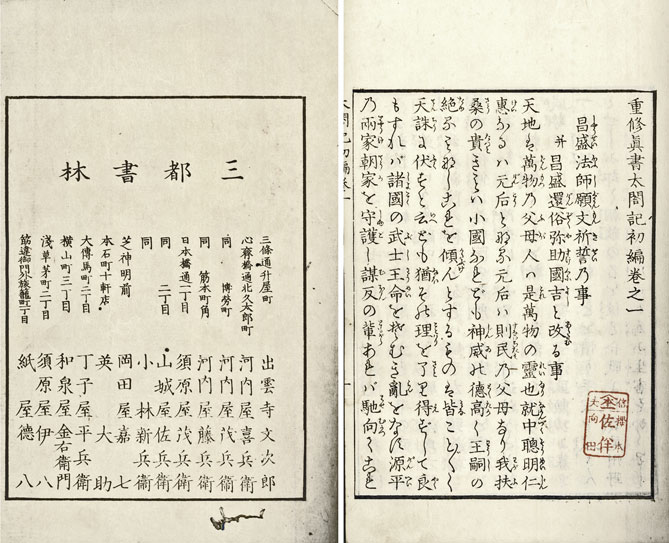 重修眞書太閤記初編卷之一
昌盛法師願文祈誓乃事
并昌盛還俗弥助國吉と改る事
天地は萬物乃父母人ハ是萬物の靈也就中聰明仁
惠なるハ元后となる元后ハ則民乃父母なり我扶
桑の貴きこと小國なれども神威の德高く王嗣の
絶ることなしこれを傾んとするものは皆こと〴〵く
天誅に伏すと云ども猶其理を了得ずして良
もすれバ諸國の武士王命をそむき亂をなす源平
乃兩家朝家を守護し謀反の輩あれバ馳向てこれ
三都書林
三條通升屋町 出雲寺文次郎
心齋橋通北久太郎町 河内屋喜兵衛
同 博勞町 河内屋茂兵衛
同 筋本町角 河内屋藤兵衛
日本橋通一丁目 須原屋茂兵衛
同 二丁目 山城屋佐兵衛
同 小林新兵衛
芝神明前 岡田屋嘉七
本石町十軒店 英大助
大傳馬町二丁目 丁子屋平兵衛
横山町三丁目 和泉屋金右衛門
淺草茅町二丁目 須原屋伊八
筋違御門外旅籠町一丁目 紙屋德八